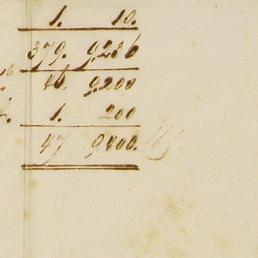 1. 10.
379. 9286
46. 9200
1. 200
47 9400.